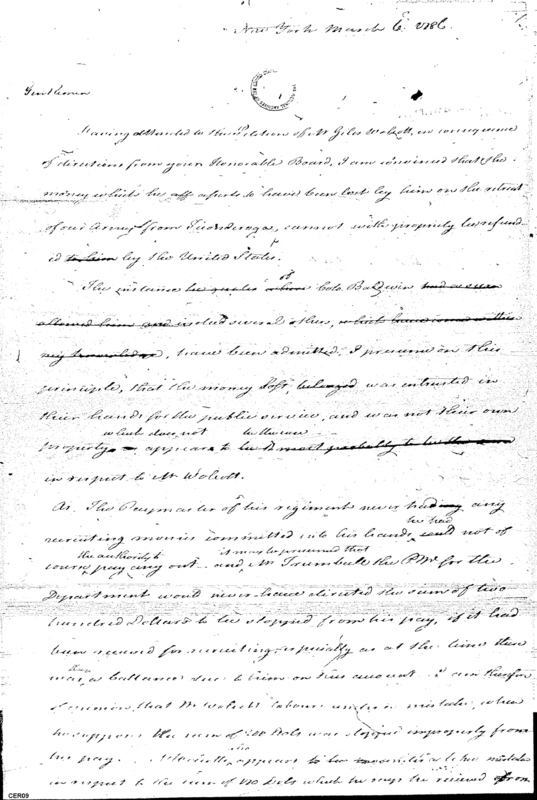 New York March 6 1786
Gentlemen
Having attended to the Petition of Mr Giles Wolcott, in consequence
of directions from your Honorable Board, I am convinced that the
money which he asserts to have been lost by him on the retreat
of our Army from Ticonderoga, cannot with propriety be refund
ed to him by the United States.
of
The instance he quotes where Colo. Baldwin had a sum
allowed him and indeed several others, which have come within
my knowledge, have been admitted, I presume on this
principle, that the money lost, belonged was entrusted in
their hands for the public service, and was not their own
which does not be the case
property appears to be most probably to be the case
in respect to Mr Wolcott.
As The Paymaster of his regiment never had any
he had
recruiting monies committed into his hands, could not of
the authority to it may be presumed that
course pay any out and Mr Trumbull the P Mr for the
Department would never have directed the sum of two
hundred Dollars to be stopped from his pay, if it had
been received for recruiting, especially as at the time there
was a ballance due to him on this account. I am therefore
of opinion that Mr Wolcott labours under a mistake, when
he supposes the sum of 200 Dols was stopped improperly from
his pay. appears to be mistake
in respect to the sum of Dols which he says he received from
CER09